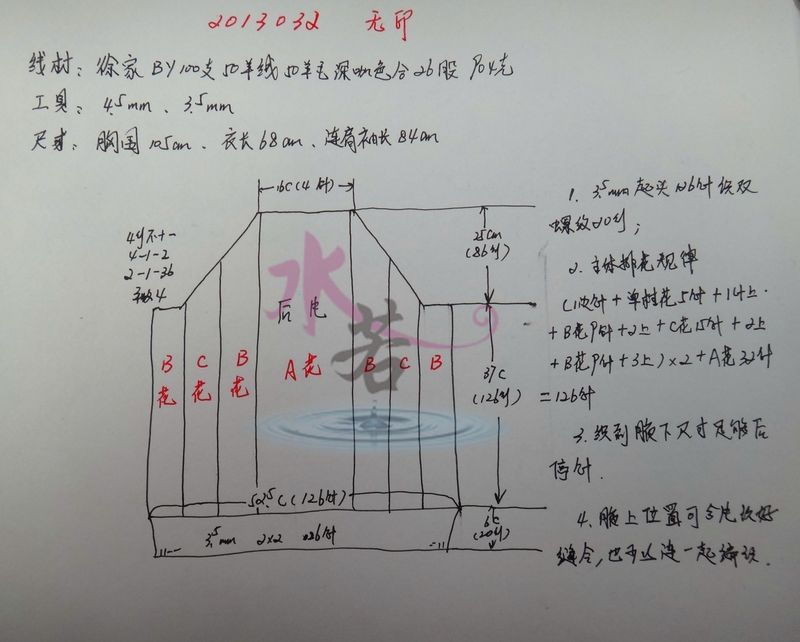 2013032 无印
线材：徐家BY100支50羊绒50羊毛深咖色合26股 904克
工具：4.5mm、3.5mm
尺寸：胸围105cm、衣长68cm、连肩袖长84cm
16C(4针)
4-1-2
2-1-36
平收4
25cm
(86行)
后片
水若
B花
C花
B花
A花
B
C
B
37C
(126行)
52.5C(126针)
3.5mm 2x2 126针
6C
(20行)
1. 3.5mm起头126针织双
螺纹20行；
2. 主体排花规律
(1边针+单桂花5针+14上
+B花9针+2上+C花15针+2上
+B花9针+3上)×2+A花32针
=126针
3. 织到腋下尺寸足够后
停针.
4. 腋上位置可分片织好
缝合,也可以连一起编织.